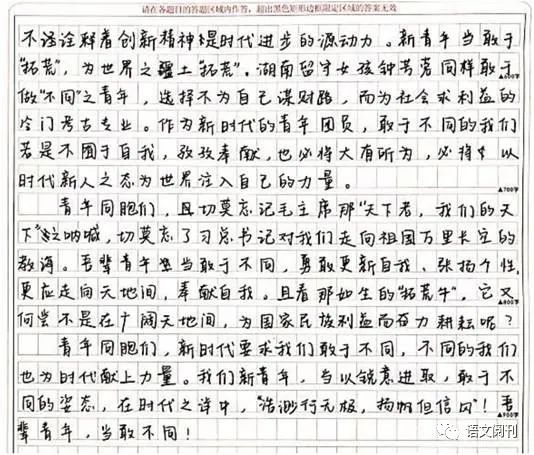 请在各题目的答题区域内作答，超出黑色矩形边框限定区域的答案无效
不湮诠释着创新精神是时代进步的源动力。新青年当敢于
“拓荒”，为世界之疆土“拓荒”。湖南留守女孩钟芳蓉同样敢于
▲600字
做“不同”之青年，选择不为自己谋财路，而为社会求利益的
冷门考古专业。作为新时代的青年团员，敢于不同的我们
若是不囿于自我，孜孜奉献，也必将大有所为，必将以
时代新人之态为世界注入自己的力量。
▲700字
青年同胞们，且切莫忘记毛主席那“天下者，我们的天
下”之呐喊，切莫忘了习总书记对我们走向祖国万里长空的
教诲。吾辈青年当敢于不同，勇敢更新自我、张扬个性，
更应走向天地间，奉献自我。且看那如生的“拓荒牛”，它又
▲800字
何尝不是在广阔天地间，为国家民族利益而奋力耕耘呢？
青年同胞们，新时代要求我们敢于不同，不同的我们
也为时代献上力量。我们新青年，当以锐意进取，敢于不
同的姿态，在时代之洋中，“浩渺行无极，扬帆但信风”！吾
▲900字
辈青年，当敢不同！
语文阅刊